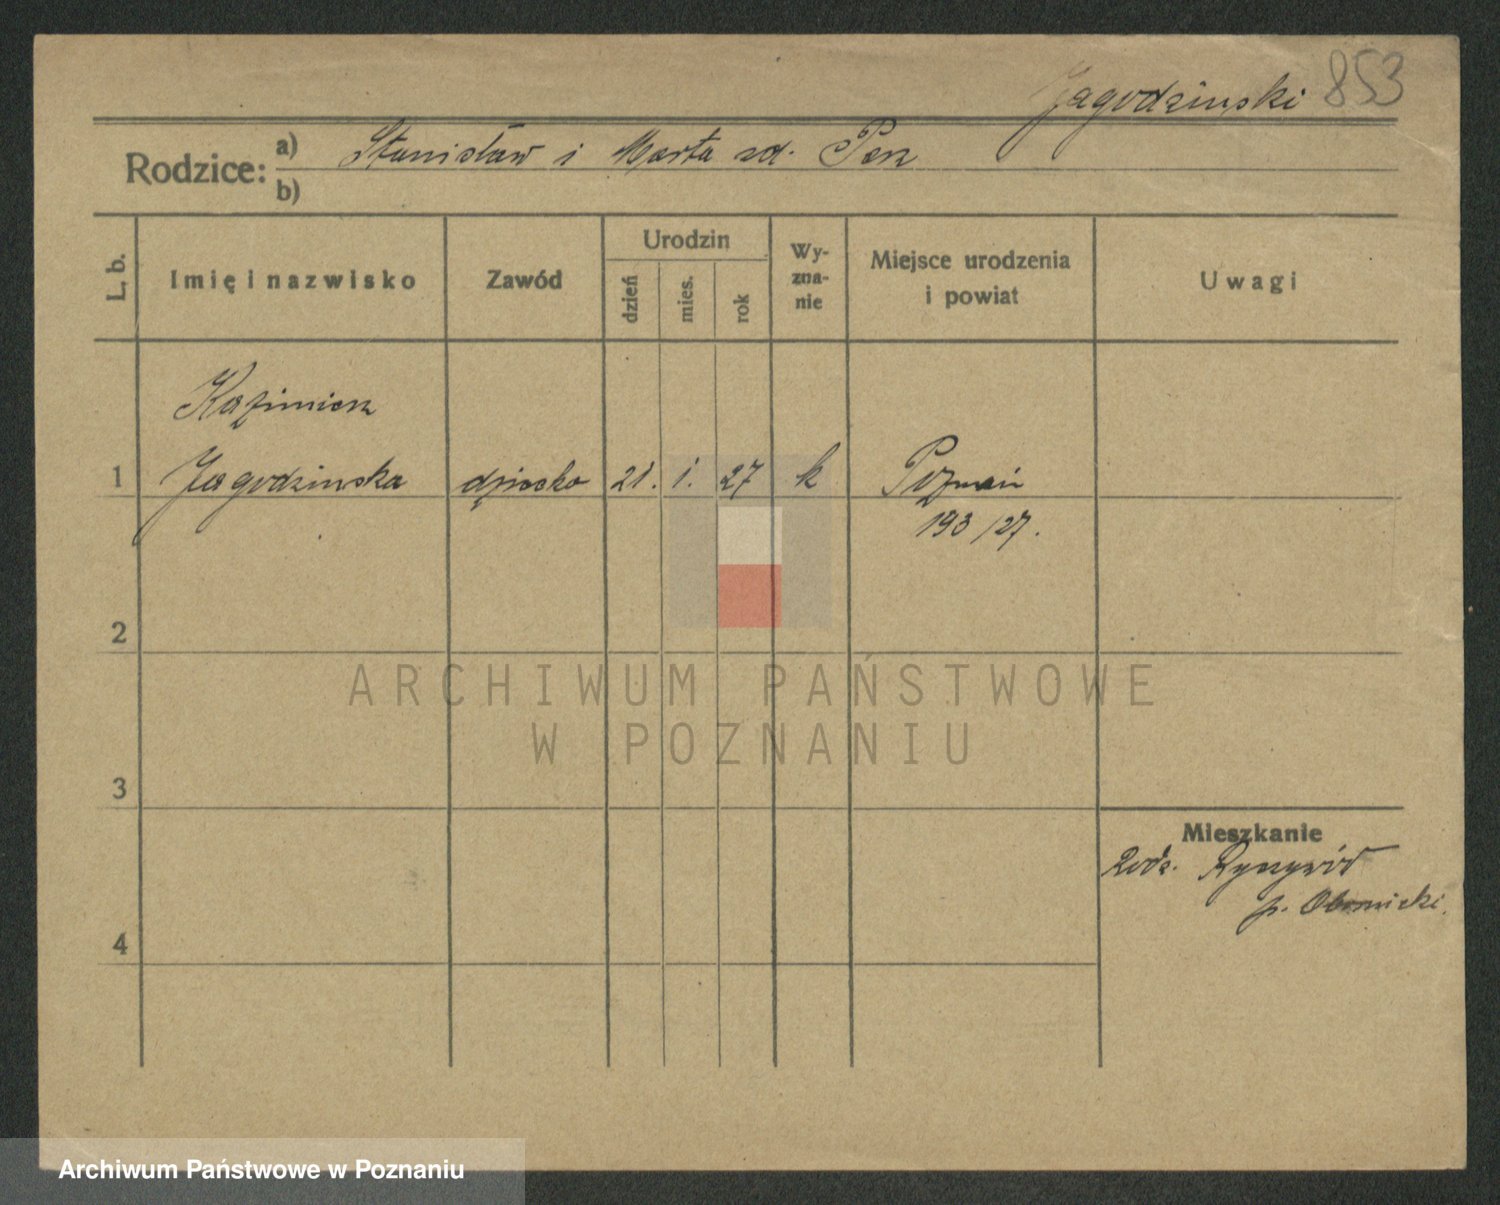 Jagodzinski 853
Rodzice: a) Stanisław i Marta zd. Perz
b)
L. b. Imię i nazwisko Zawód Urodzin dzień mies. rok Wyzna-nie Miejsce urodzenia i powiat Uwagi
Kazimierz
1 Jagodzinska dziecko 21. 1. 27 k Poznań
193/27.
2
ARCHIWUM PAŃSTWOWE
W POZNANIU
3
Mieszkanie
Rodz. Ryczywół
p. Obornicki.
4
Archiwum Państwowe w Poznaniu